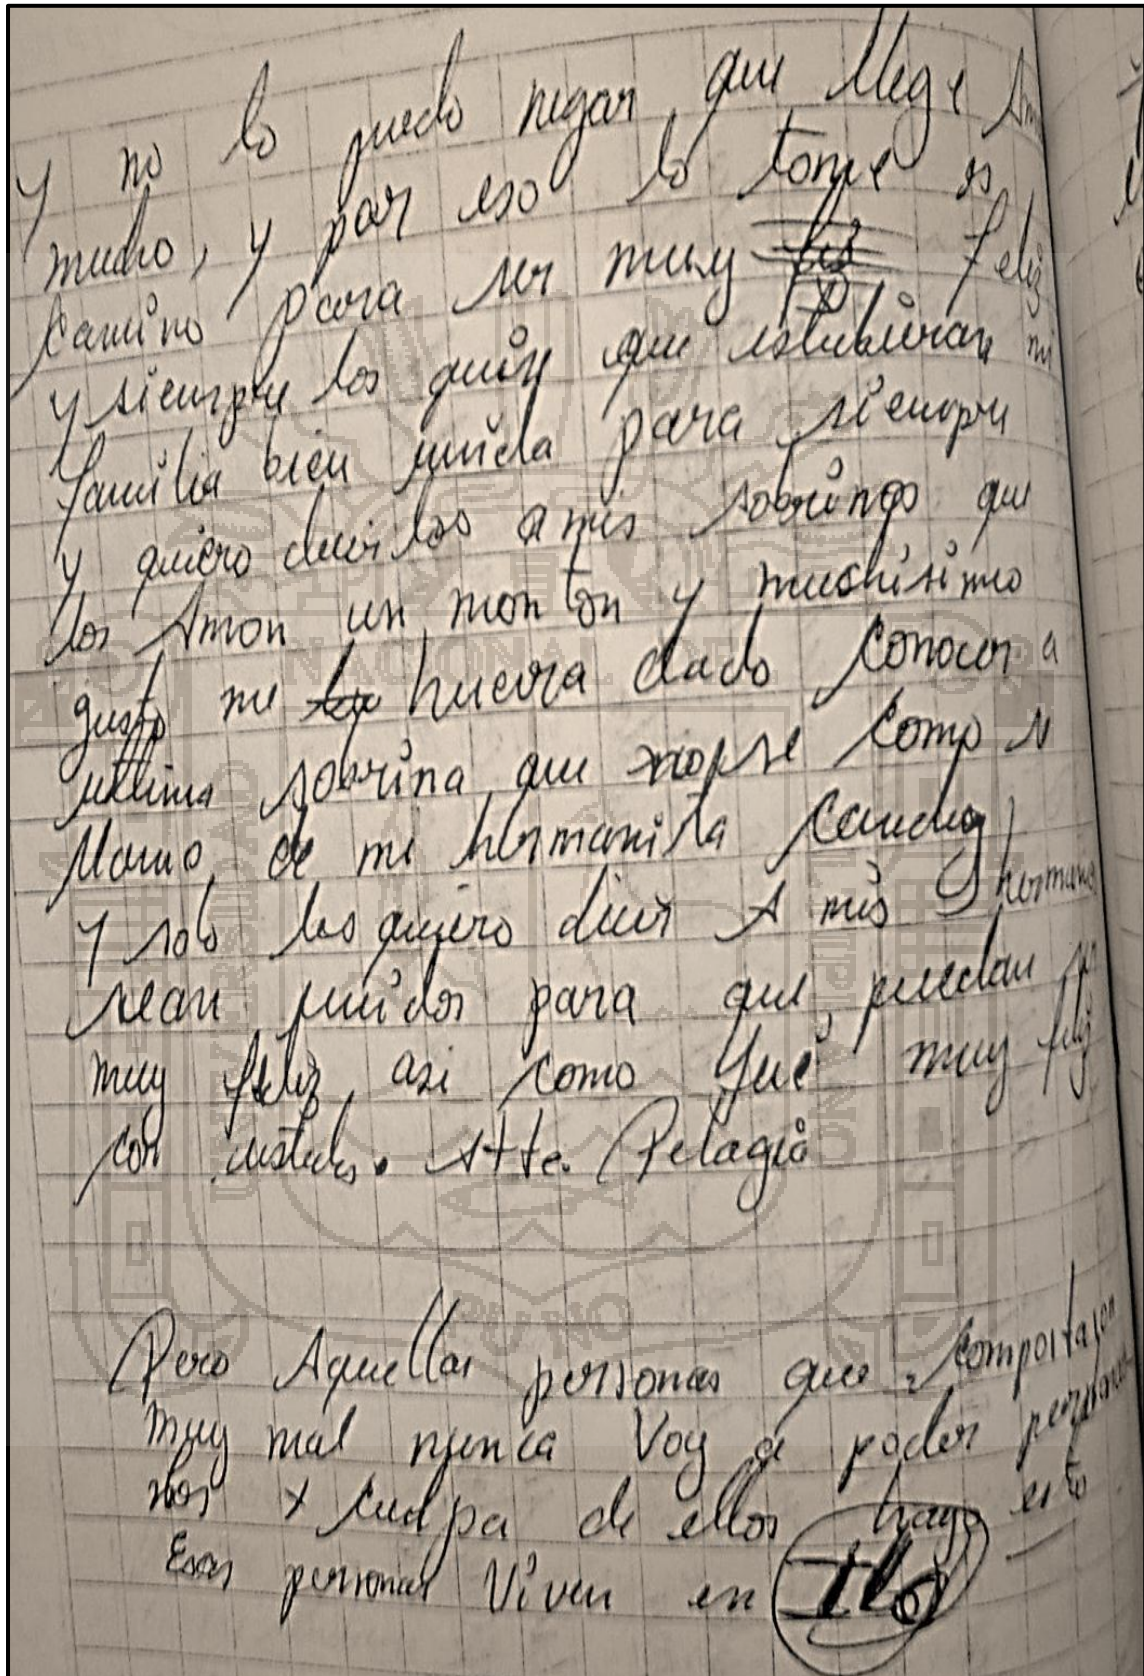 y no lo puedo negar que llege Am
mucho, y por eso lo tome es
camino para ser muy feliz
y siempre los quise que estubieran mi
familia bien unida para siempre
y quiero decirlos a mis sobrinos que
los Amon un monton y muchisimo
gusto me huera dado conocer a
ultima sobrina que como
de mi hermanita
y solo les quiero dicir A mis hermanos
sean unidos para que puedan
muy feliz asi como fue muy feliz
con ustedes. Atte. Pelagio
Pero Aquellas personas que comportaron
muy mal nunca Voy a poder perdonar
los x culpa de ellos hago esto
Esas personas Viven en Ilo
NACIONAL DEL
UNIVERSIDAD
ALTIPLANO
PUNO